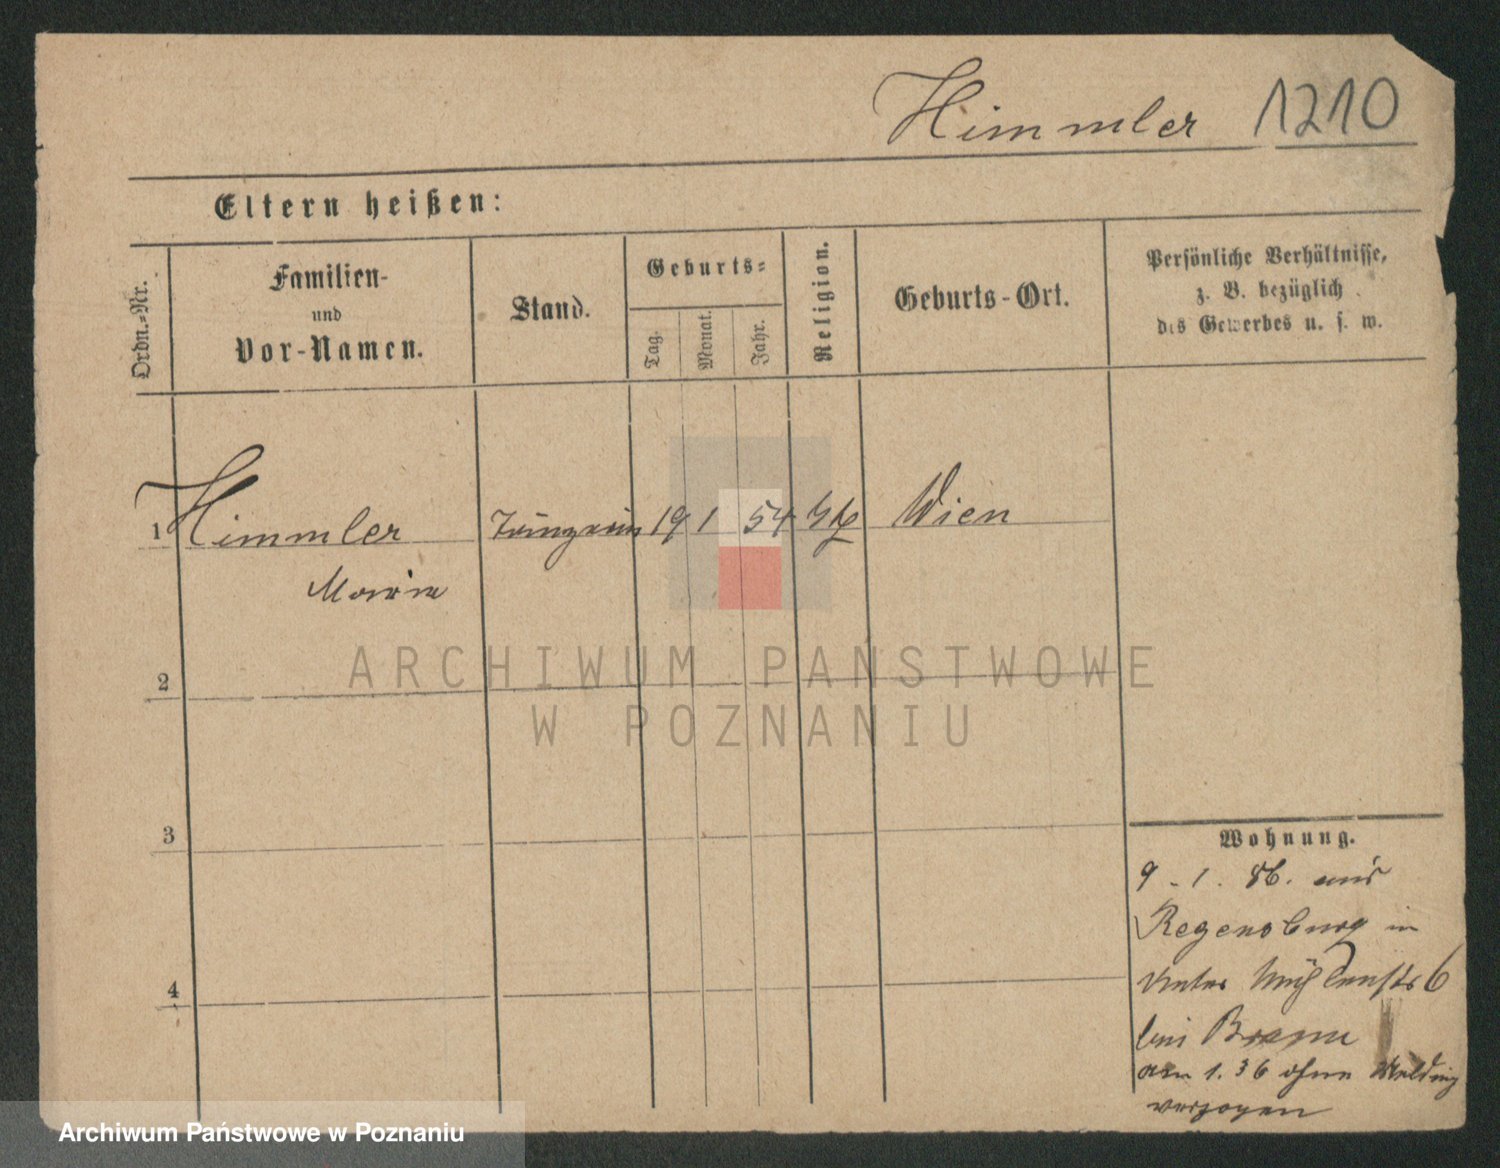 Himmler 1210
Eltern heißen:
Ordn.=Nr.
Familien-
und
Vor-Namen.
Stand.
Geburts=
Tag.
Monat.
Jahr.
Religion.
Geburts-Ort.
Persönliche Verhältnisse,
z. B. bezüglich
des Gewerbes u. s. w.
1 Himmler 19 1 54 Wien
Maria
2
3
4
ARCHIWUM PAŃSTWOWE
W POZNANIU
Wohnung.
9. 1. 86. aus
Regensburg in
Unter Mühlenstr 6
bei
1. 36 ohne Meldung
verzogen
Archiwum Państwowe w Poznaniu